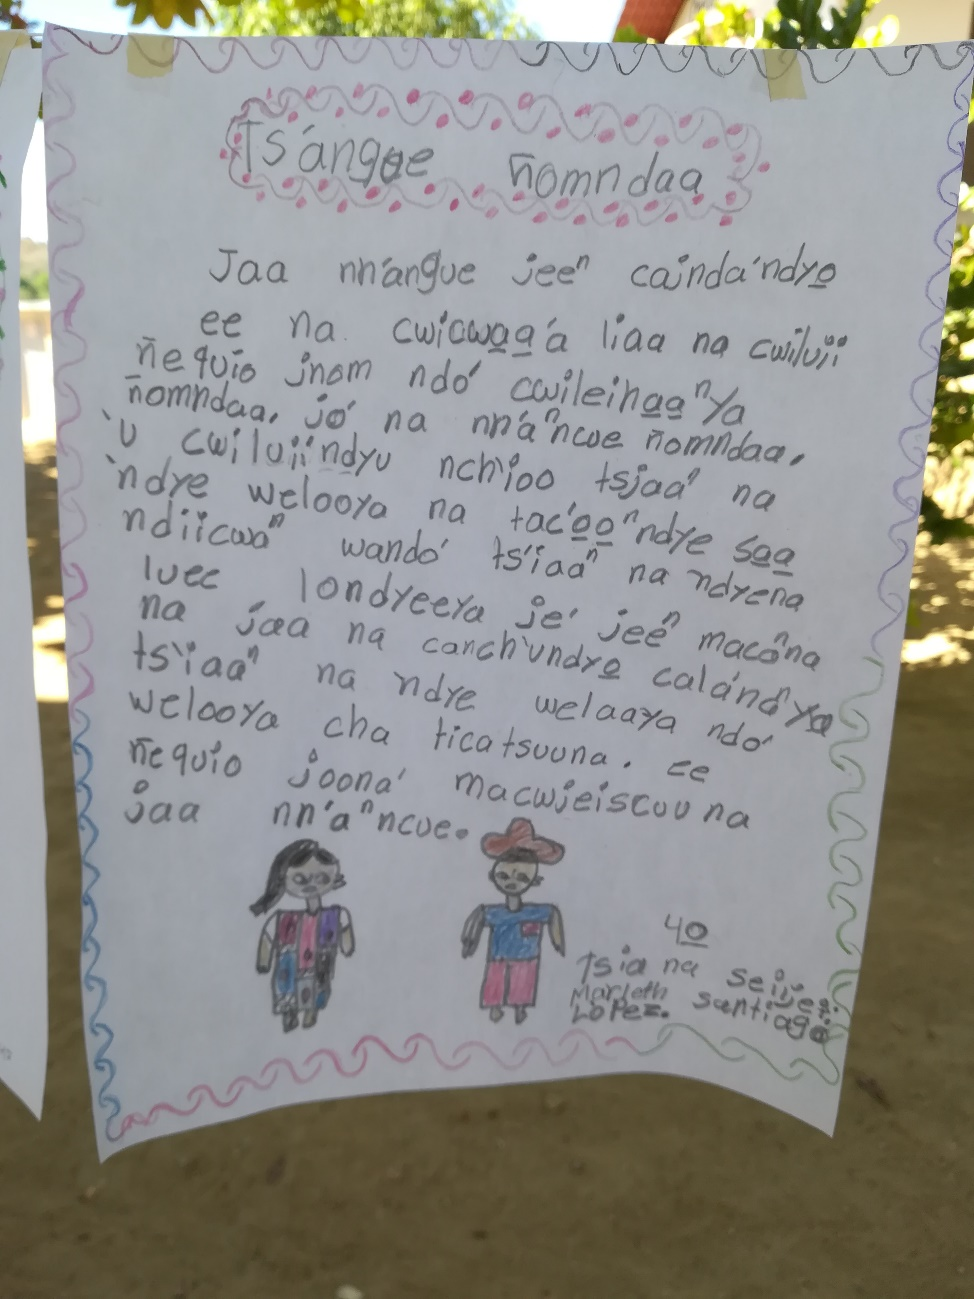 Ts'angue ñomndaa
Jaa nn'angue jeeⁿ cainda'ndyo̲
ee na cwicwa̲a̲'a liaa na cwiluii
ñequio jnom ndo' cwileina̲a̲ⁿya
ñomndaa, jo' na nn'aⁿncue ñomndaa.
'U cwiluiindyu nch'ioo tsjaa' na
'ndye welooya na tac'o̲o̲ⁿndye sa̲a̲
ndiicwaⁿ wando' ts'iaaⁿ na 'ndyena
luee londyeeya je' jeeⁿ maco'na
na jaa na canch'undyo̲ calándya̲
ts'iaaⁿ na 'ndye welaaya ndo'
welooya cha ticatsuuna. ee
ñequio joona' macwjeiscuu na
jaa nn'aⁿncue.
4o̲
Tsia na seijei:
Marleth santiago
Lopez.